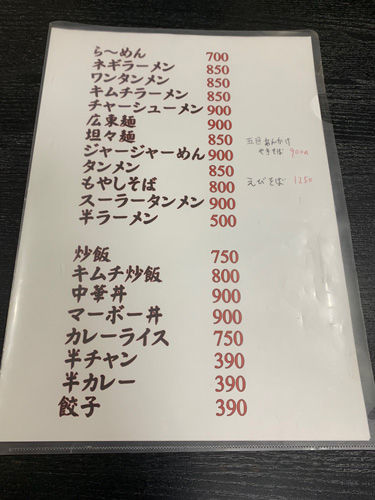 らーめん 700
ネギラーメン 850
ワンタンメン 850
キムチラーメン 850
チャーシューメン 900
広東麺 900
坦々麺 850
ジャージャーめん 900
タンメン 850
もやしそば 800
スーラータンメン 900
半ラーメン 500
五目あんかけ
やきそば 900円
えびそば 1250
炒飯 750
キムチ炒飯 800
中華丼 900
マーボー丼 900
カレーライス 750
半チャン 390
半カレー 390
餃子 390